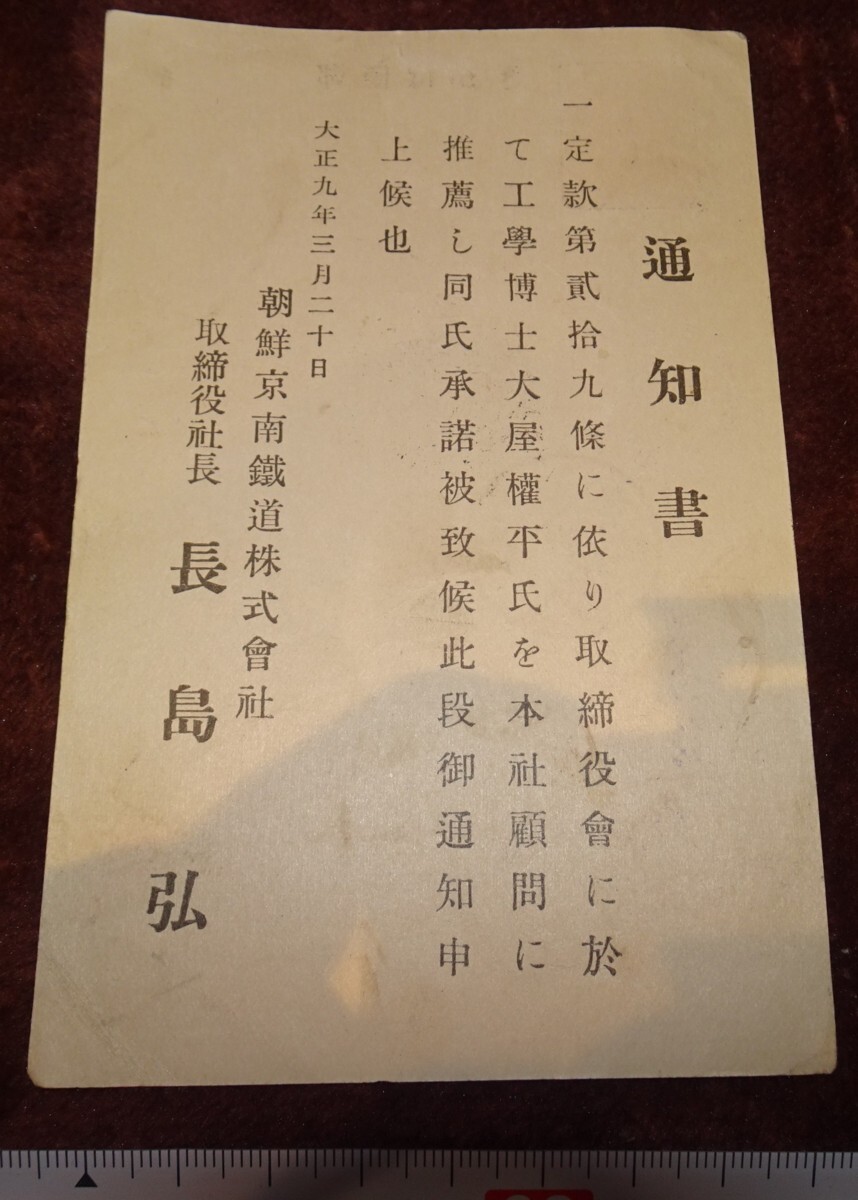 通知書
一定款第貳拾九條に依り取締役會に於
て工學博士大屋權平氏を本社顧問に
推薦し同氏承諾被致候此段御通知申
上候也
大正九年三月二十日
朝鮮京南鐵道株式會社
取締役社長 長島弘